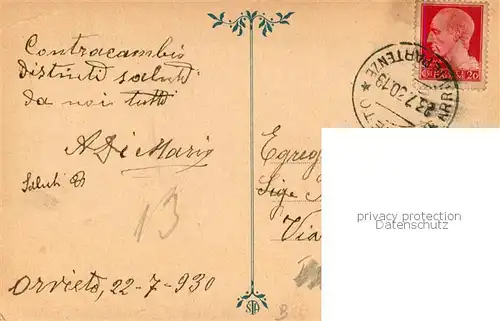 Contracambio
Distinti saluti
da noi tutti
A Di Mario
Saluti
13
Orvieto, 22-7-930
Egreg
Sig.
Via
ARRIVI PARTENZE
privacy protection
Datenschutz